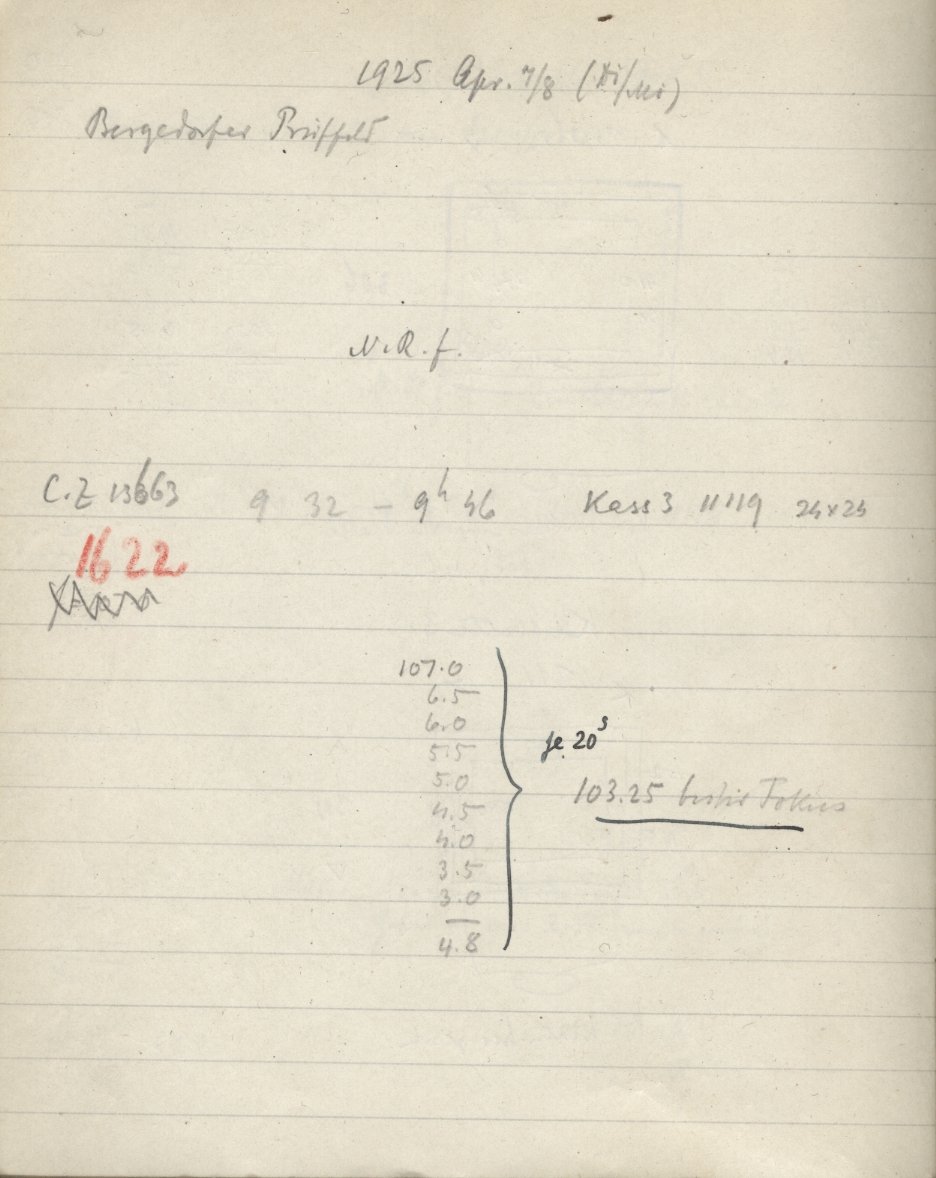 1925 Apr. 7/8 (Di/Mi)
Bergedorfer Prüffeld
N.R.f.
C.Z 13663 9 32 – 9h 46 Kass 3 11119 24×24
1622
107.0
6.5
6.0
5.5
je 20s
5.0
103.25 bester Fokus
4.5
4.0
3.5
3.0
4.8